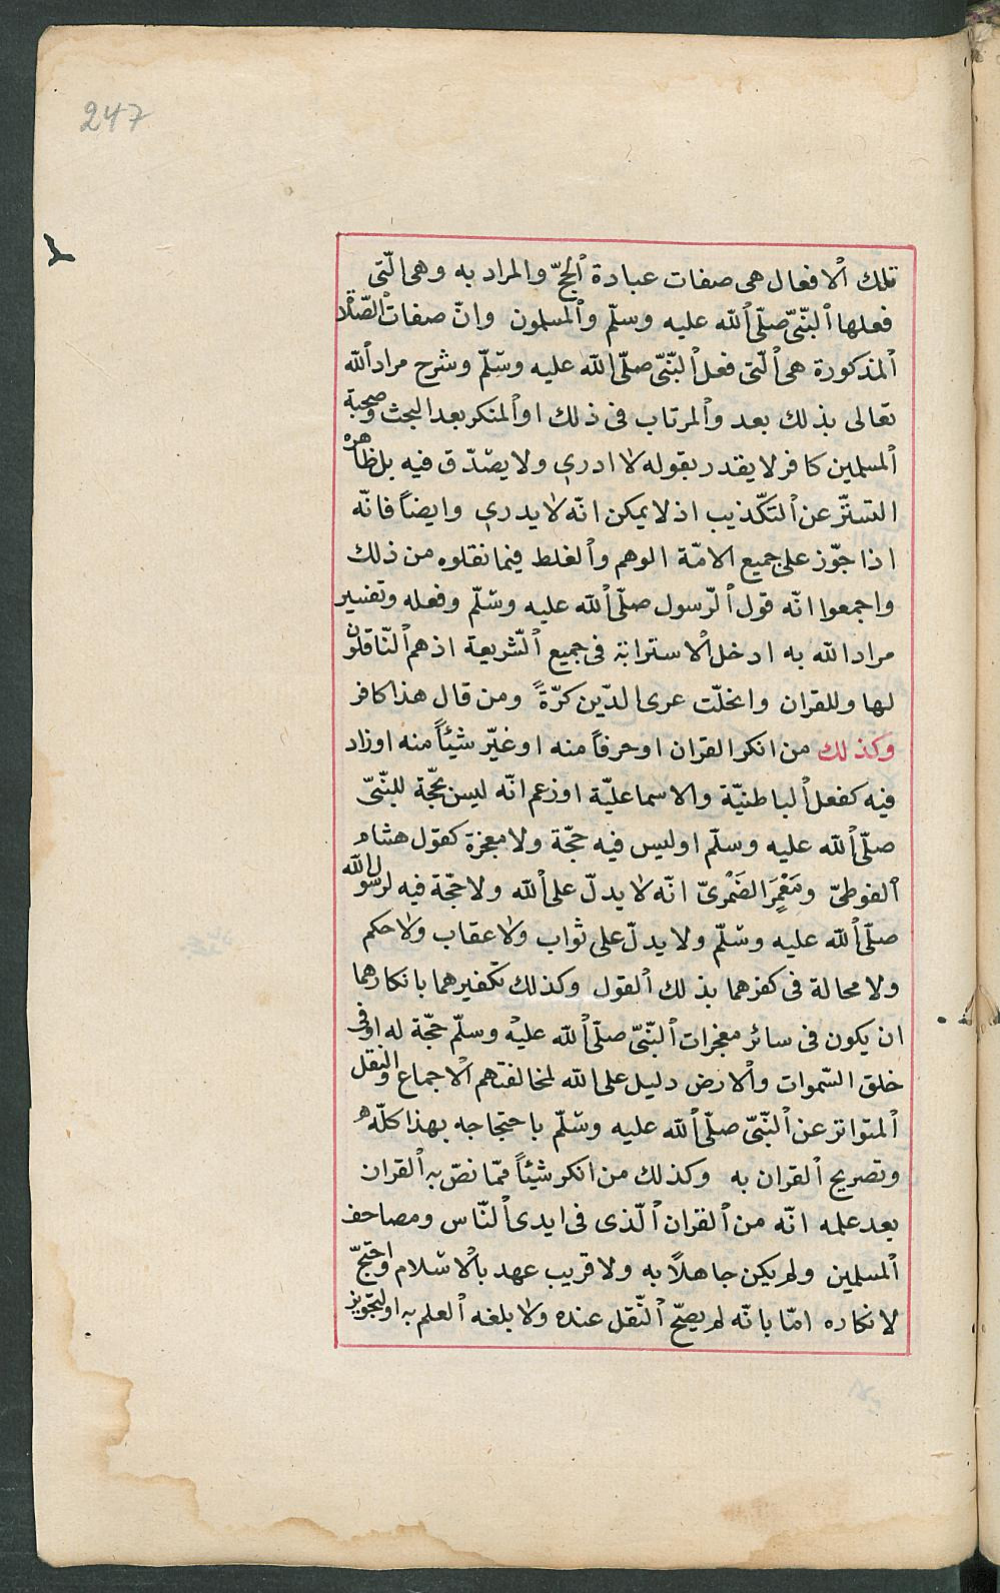 247
تلك الافعال هى صفات عبادة الحجّ والمراد به وهى الّتى
فعلها النّبىّ صلّى الله عليه وسلّم والمسلمون وانّ صفات الصّلاة
المذكورة هى الّتى فعل النّبىّ صلّى الله عليه وسّلّم وشرح مراد الله
تعالى بذلك بعد والمرتاب فى ذلك او المنكر بعد البحث وصحبة
المسلمين كافر لا يقدر بقوله لا ادرى ولا يصّدّق فيه بل ظاهره
التستّر عن التكّذيب اذ لا يمكن انّه لا يدرى وايضاً فانّه
اذا جوّز على جميع الامّة الوهم والغلط فيما نقلوه من ذلك
واجمعوا انّه قول الرّسول صلّى الله عليه وسّلّم وفعله وتفسير
مراد الله به ادخل الاسترابة فى جميع الشّريعة اذ هم النّاقلون
لها وللقران وانحلّت عرى الدّين كرّةً ومن قال هذا كافر
وكذلك من انكر القران او حرفاً منه او غيّر شيئاً منه او زاد
فيه كفعل الباطنيّة والاسماعليّة او زعم انّه ليس بحجّة للنّبىّ
صلّى الله عليه وسلّم او ليس فيه حجّة ولا معجزة كقول هشام
الفوطىّ ومَعْمِرَ الضَمْرىّ انّه لا يدلّ على الله ولا حجّة فيه لرسول الله
صلّى الله عليه وسّلّم ولا يدلّ على ثواب ولا عقاب ولا حكم
ولا محالة فى كفرهما بذلك القول وكذلك تكفيرهما بانكارهما
ان يكون فى سائر معجزات النّبىّ صلّى الله عليه وسلّم حجّة له او فى
خلق السّموات والارض دليل على الله لمخالفتهم الاجماع والنقل
المتواتر عن النّبىّ صلّى الله عليه وسّلّم باحتجاجه بهذا كلّه
وتصريح القران به وكذلك من انكر شيئاً ممّا نصّ به القران
بعد علمه انّه من القران الّذى فى ايدى النّاس ومصاحف
المسلمين ولم يكن جاهلاً به ولا قريب عهد بالاسلام واحتجّ
لانكاره امّا بانّه لم يصحّ النّقل عنده ولا بلغه العلم به او لتجويز